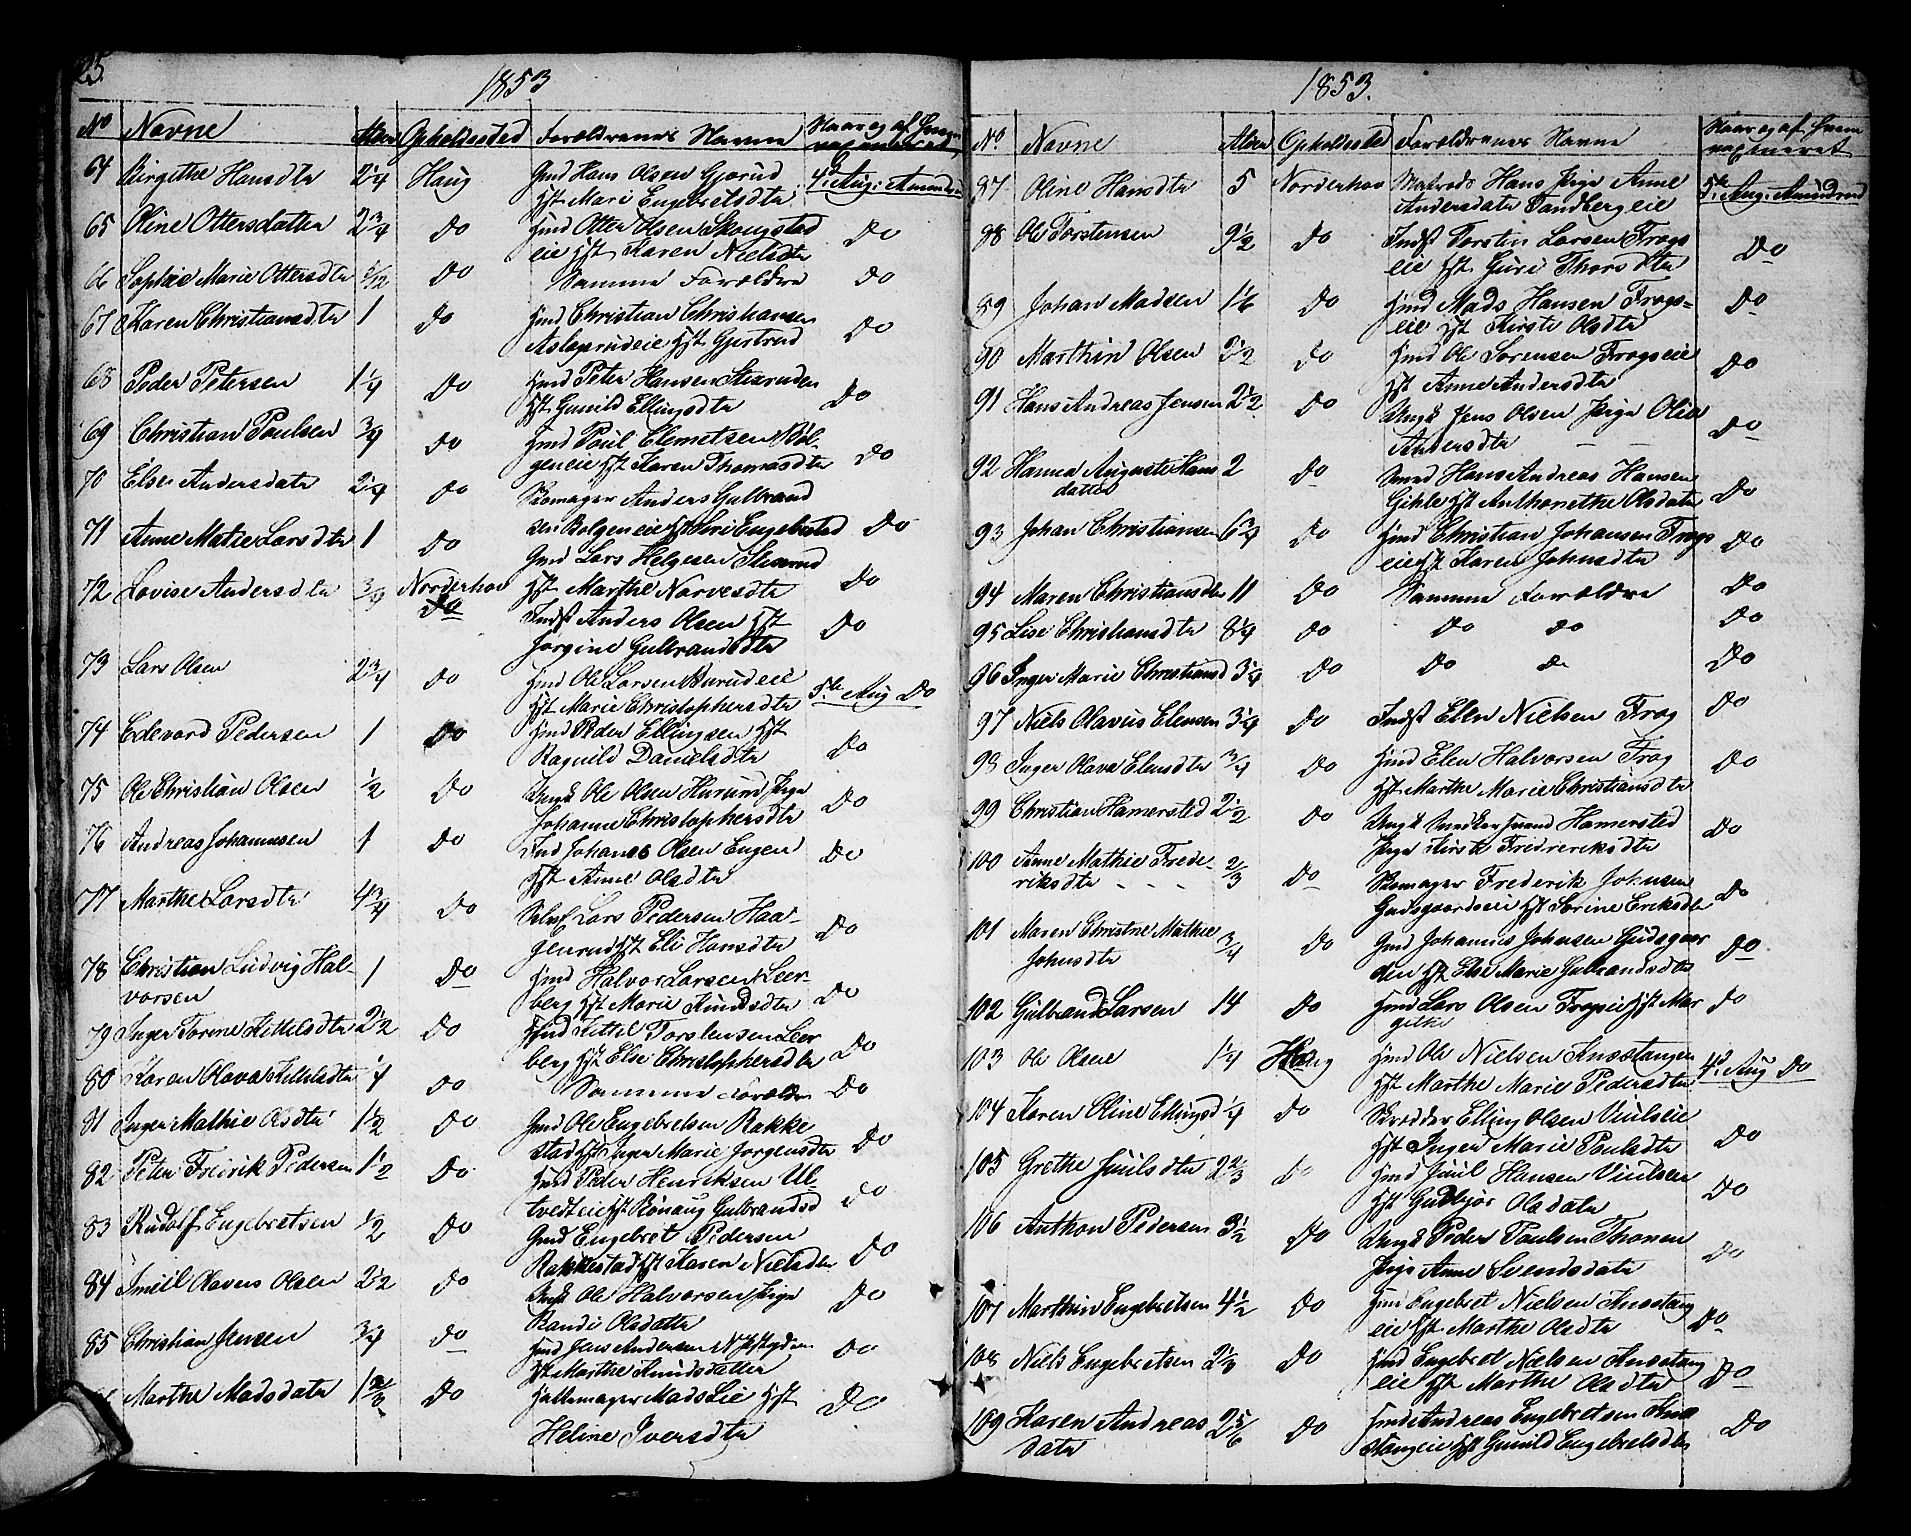 25.
1853
No Navne Alder Opholdssted Forældrenes Navne Naar og af hvem vaxineret
64 Birgithe Hansdtr 2 1/4 Haug Gmd Hans Olsen Gjorud 4de Aug: Amundrud
Hst Mari Engebretsdtr
65 Oline Ottersdatter 2 3/4 Do Hmd Otter Olsen Skougstad Do
eie Hst Karen Nielsdtr
66 Sophie Marie Ottersdtr 1/2 Do Samme Forældre Do
67 Karen Christiansdtr 1 Do Hmd Christian Christiansen Do
Aslagrudeie Hst Gjertrud
68 Peder Petersen 1 1/4 Do Hmd Peter Hansen Do
Hst Gunild Ellingsdtr
69 Christian Paulsen 3/4 Do Hmd Paul Clemetsen Bøl-
geneie Hst Karen Thomasdtr Do
70 Else Andersdatr 2 1/4 Do Skomager Anders Gulbrand
sen Bølgeneie Hst Siri Do
71 Anne Matie Larsdtr 1 Do Gmd Lars Helgesen
Hst Marthe Narvesdtr Do
72 Lovise Andersdtr 3/4 Norderhov Do Indst Anders Olsen Hst Do
Jorgine Gulbrandsdtr
73 Lars Olsen 2 3/4 Do Hmd Ole Larsen Burudeie 5te Aug Do
Hst Marie Christophersdtr
74 Edevard Pedersen 1 Do Hmd Peder Ellingsen Hst Do
Ragnild Danielsdtr
75 Ole Christian Olsen 1/2 Do Ungk Ole Olsen Hurund Pige Do
Johanne Christophersdtr
76 Andreas Johannesen 1 Do Ind Johans Olsen Eugen Do
Hst Anne Olsdtr
77 Marthe Larsdtr 4 3/4 Do Selvf Lars Pedersen Haa- Do
genrud Hst Eli Hansdtr
78 Christian Ludvig Hal- 1 Do Hmd Halvor Larsen Leer-
vorsen berg Hst Marie Knudsdtr Do
79 Inger Torene Kittilsdtr 2 1/2 Do Hmd Kittil Torstensen Leer
berg Hst Else Christophersdtr Do
80 Karen Olava Kittilsdtr 1/4 Do Samme Forældre Do
81 Inger Mathie Olsdtr 1 1/2 Do Gmd Ole Engebretsen Rakke Do
stad Hst Inger Marie Jorgensdtr
82 Peter Fredrik Pedersen 1 1/2 Do Hmd Peder Henriksen Ul- Do
tvedteie Hst Rønaug Gulbrandsd
83 Rudolf Engebretsen 1/2 Do Gmd Engebret Pedersen
Rakkestad Hst Karen Nielsdtr Do
84 Imeil Olaves Olsen 2 1/2 Do Ungk Ole Halvorsen Pige Do
Randi Olsdatter
85 Christian Jensen 3/4 Do Hmd Jens Andersen Do
Hst Marthe Knudsdatter
Marthe Madsdatr 1 Do Hattemager Mads Lie Hst Do
Heline Iversdtr
1853.
No Navne Alder Opholdssted Forældrenes Navne Naar og af hvem vaxineret
87 Oline Hansdtr 5 Norderhov Matrods Hans Pige Anne 5te Aug: Amundrud
Andersdatr Tandbergeie
88 Ole Torstensen 9 1/2 Do Indst Torsten Larsen Frogs Do
eie Hst Guri Thorsdtr
89 Johan Madsen 1 1/6 Do Hmd Mads Hansen Frogs- Do
eie Hst Kirsti Olsdtr
90 Marthin Olsen 2 1/2 Do Hmd Ole Sorensen Frogseie Do
Hst Anne Andersdtr
91 Hans Andreas Jensen 2 1/2 Do Ungk Jens Olsen Pige Olia Do
Andersdtr
92 Hanna Auguste Hans 2 Do Smed Hans Andreas Hansen
datter Gihle Hst Anthonethe Olsdatr Do
93 Johan Christiansen 6 3/4 Do Hmd Christian Johansen Frogs Do
eie Hst Karen Johnsdtr
94 Maren Christiansdtr 11 Do Samme Forældre Do
95 Lise Christiansdtr 8 1/4 Do Do Do Do
96 Inger Marie Christiansd 3 1/4 Do Do Do Do
97 Niels Olavus Elensen 3 1/4 Do Indst Ellen Nielsen Frog Do
98 Inger Olava Elensdtr 3/4 Do Hmd Elen Halvorsen Frog Do
Hst Marthe Marie Christiansdtr
99 Christian Hamersted 2 1/2 Do Ungk Snedkersvend Hamersted Do
Pige Kirsti Fredreriksdtr
100 Anne Mathie Frede- 2/3 Do Skomager Frederik Johnsen Do
riksdtr Gudsgaardseie Hst Sorine Eriksdtr
101 Maren Christne Mathie 3/4 Do Gmd Johannes Johnsen Gudsgaar Do
Johnsdtr den Hst Else Marie Gulbrandsdtr
102 Gulbrand Larsen 14 Do Hmd Lars Olsen Frogseie Hst Mar Do
githe
103 Ole Olsen 1 1/4 Haug Hmd Ole Nielsen Knæstangen 4de Aug Do
Hst Marthe Marie Pedersdtr
104 Karen Oline Ellingsd 1/4 Do Skrædder Elling Olsen Viulseie
Hst Inger Marie Paulsdtr Do
105 Grethe Juulsdtr 2 2/3 Do Hmd Juul Hansen Viulseie
Hst Gudbjør Olsdatr Do
106 Anthon Pedersen 3 1/2 Do Ungk Peder Paulsen Thonen Do
Pige Anne Svendsdatr
107 Marthin Engebretsen 4 1/2 Do Hmd Engebret Nielsen Knæstang Do
eie Hst Marthe Olsdtr
108 Niels Engebretsen 2 1/4 Do Hmd Engebret Nielsen Knæstang Do
eie Hst Marthe Olsdtr
109 Karen Andreas 2 5/6 Do Hmd Andreas Engebretsen Knæ Do
datr stangeie Hst Gunild Engebretsdtr